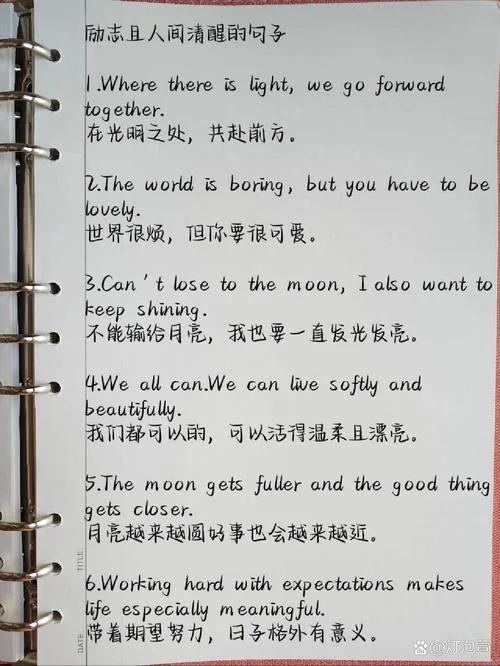 励志且人间清醒的句子
1.Where there is light, we go forward
together.
在光明之处，共赴前方。
2.The world is boring, but you have to be
lovely.
世界很烦，但你要很可爱。
3.Can't lose to the moon, I also want to
keep shining.
不能输给月亮，我也要一直发光发亮。
4.We all can.We can live softly and
beautifully.
我们都可以的，可以活得温柔且漂亮。
5.The moon gets fuller and the good thing
gets closer.
月亮越来越圆好事也会越来越近。
6.Working hard with expectations makes
life especially meaningful.
带着期望努力，日子格外有意义。
TITLE:
DATE
Bai百家号/灯泡营